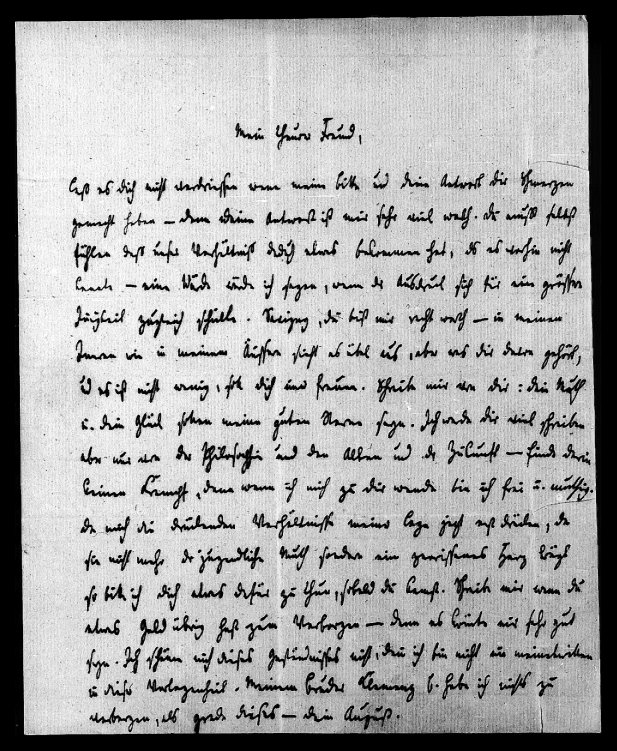 Mein theurer Freund,
Laß es dich nicht verdriessen wenn meine bitte und deine Antwort dir Schmerzen
gemacht haben — denn deine Antwort ist mir sehr viel werth. Du mußt selbst
fühlen daß unser Verhältniß dadurch etwas bekommen hat, das es vorhin nicht
kannte — eine Würde würde ich sagen, wenn der Ausdruck sich für ein größeres
zugleich schickte. du bist mir recht werth — in meinem
Innern wie in meinem Äussern sieht es übel aus, aber was dir davon gehört,
und es ist nicht wenig, soll dich nur freuen. Schreibe mir von dir: dein Muth
u. dein Glück sollen meine guten Sterne seyn. Ich werde dir viel schreiben
aber nur von der Philosophie und den Alten und der Zukunft — finde darin
keinen denn wenn ich mich zu dir wende bin ich frei u. muthig.
da mich die drückenden Verhältnisse meiner Lage jezt erst drücken, da
sie nicht mehr der jugendliche Muth sondern ein zerrissenes Herz trägt
so bitte ich dich etwas dafür zu thun, sobald du kannst. Schreibe mir wenn du
etwas Geld übrig hast zum Verborgen — denn es könnte mir sehr gut
seyn. Ich schäme mich dieses Geständnisses nicht, denn ich bin nicht um meinetwillen
in dieser Verlegenheit. Meinem bruder Clemens b. habe ich nichts zu
verbergen, als grade dieses — dein August.